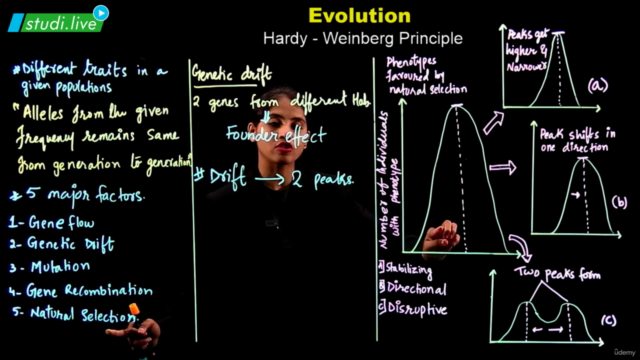 studi.live
Evolution
Hardy - Weinberg Principle
# Different traits in a
given populations
Alleles from the given
Frequency remains same
from generation to generation
5 major factors.
1- Gene flow
2- Genetic Drift
3- Mutation
4- Gene Recombination
5- Natural Selection.
Genetic drift
2 genes from different Hab
Founder effect
# Drift → 2 peaks.
Phenotypes
favoured by
natural selection
Number of individuals
with phenotype
a] Stabilizing
b] Directional
c] Disruptive
Peaks get
higher &
Narrower
(a)
Peak shifts in
one direction
(b)
Two peaks form
(c)
ûdemy